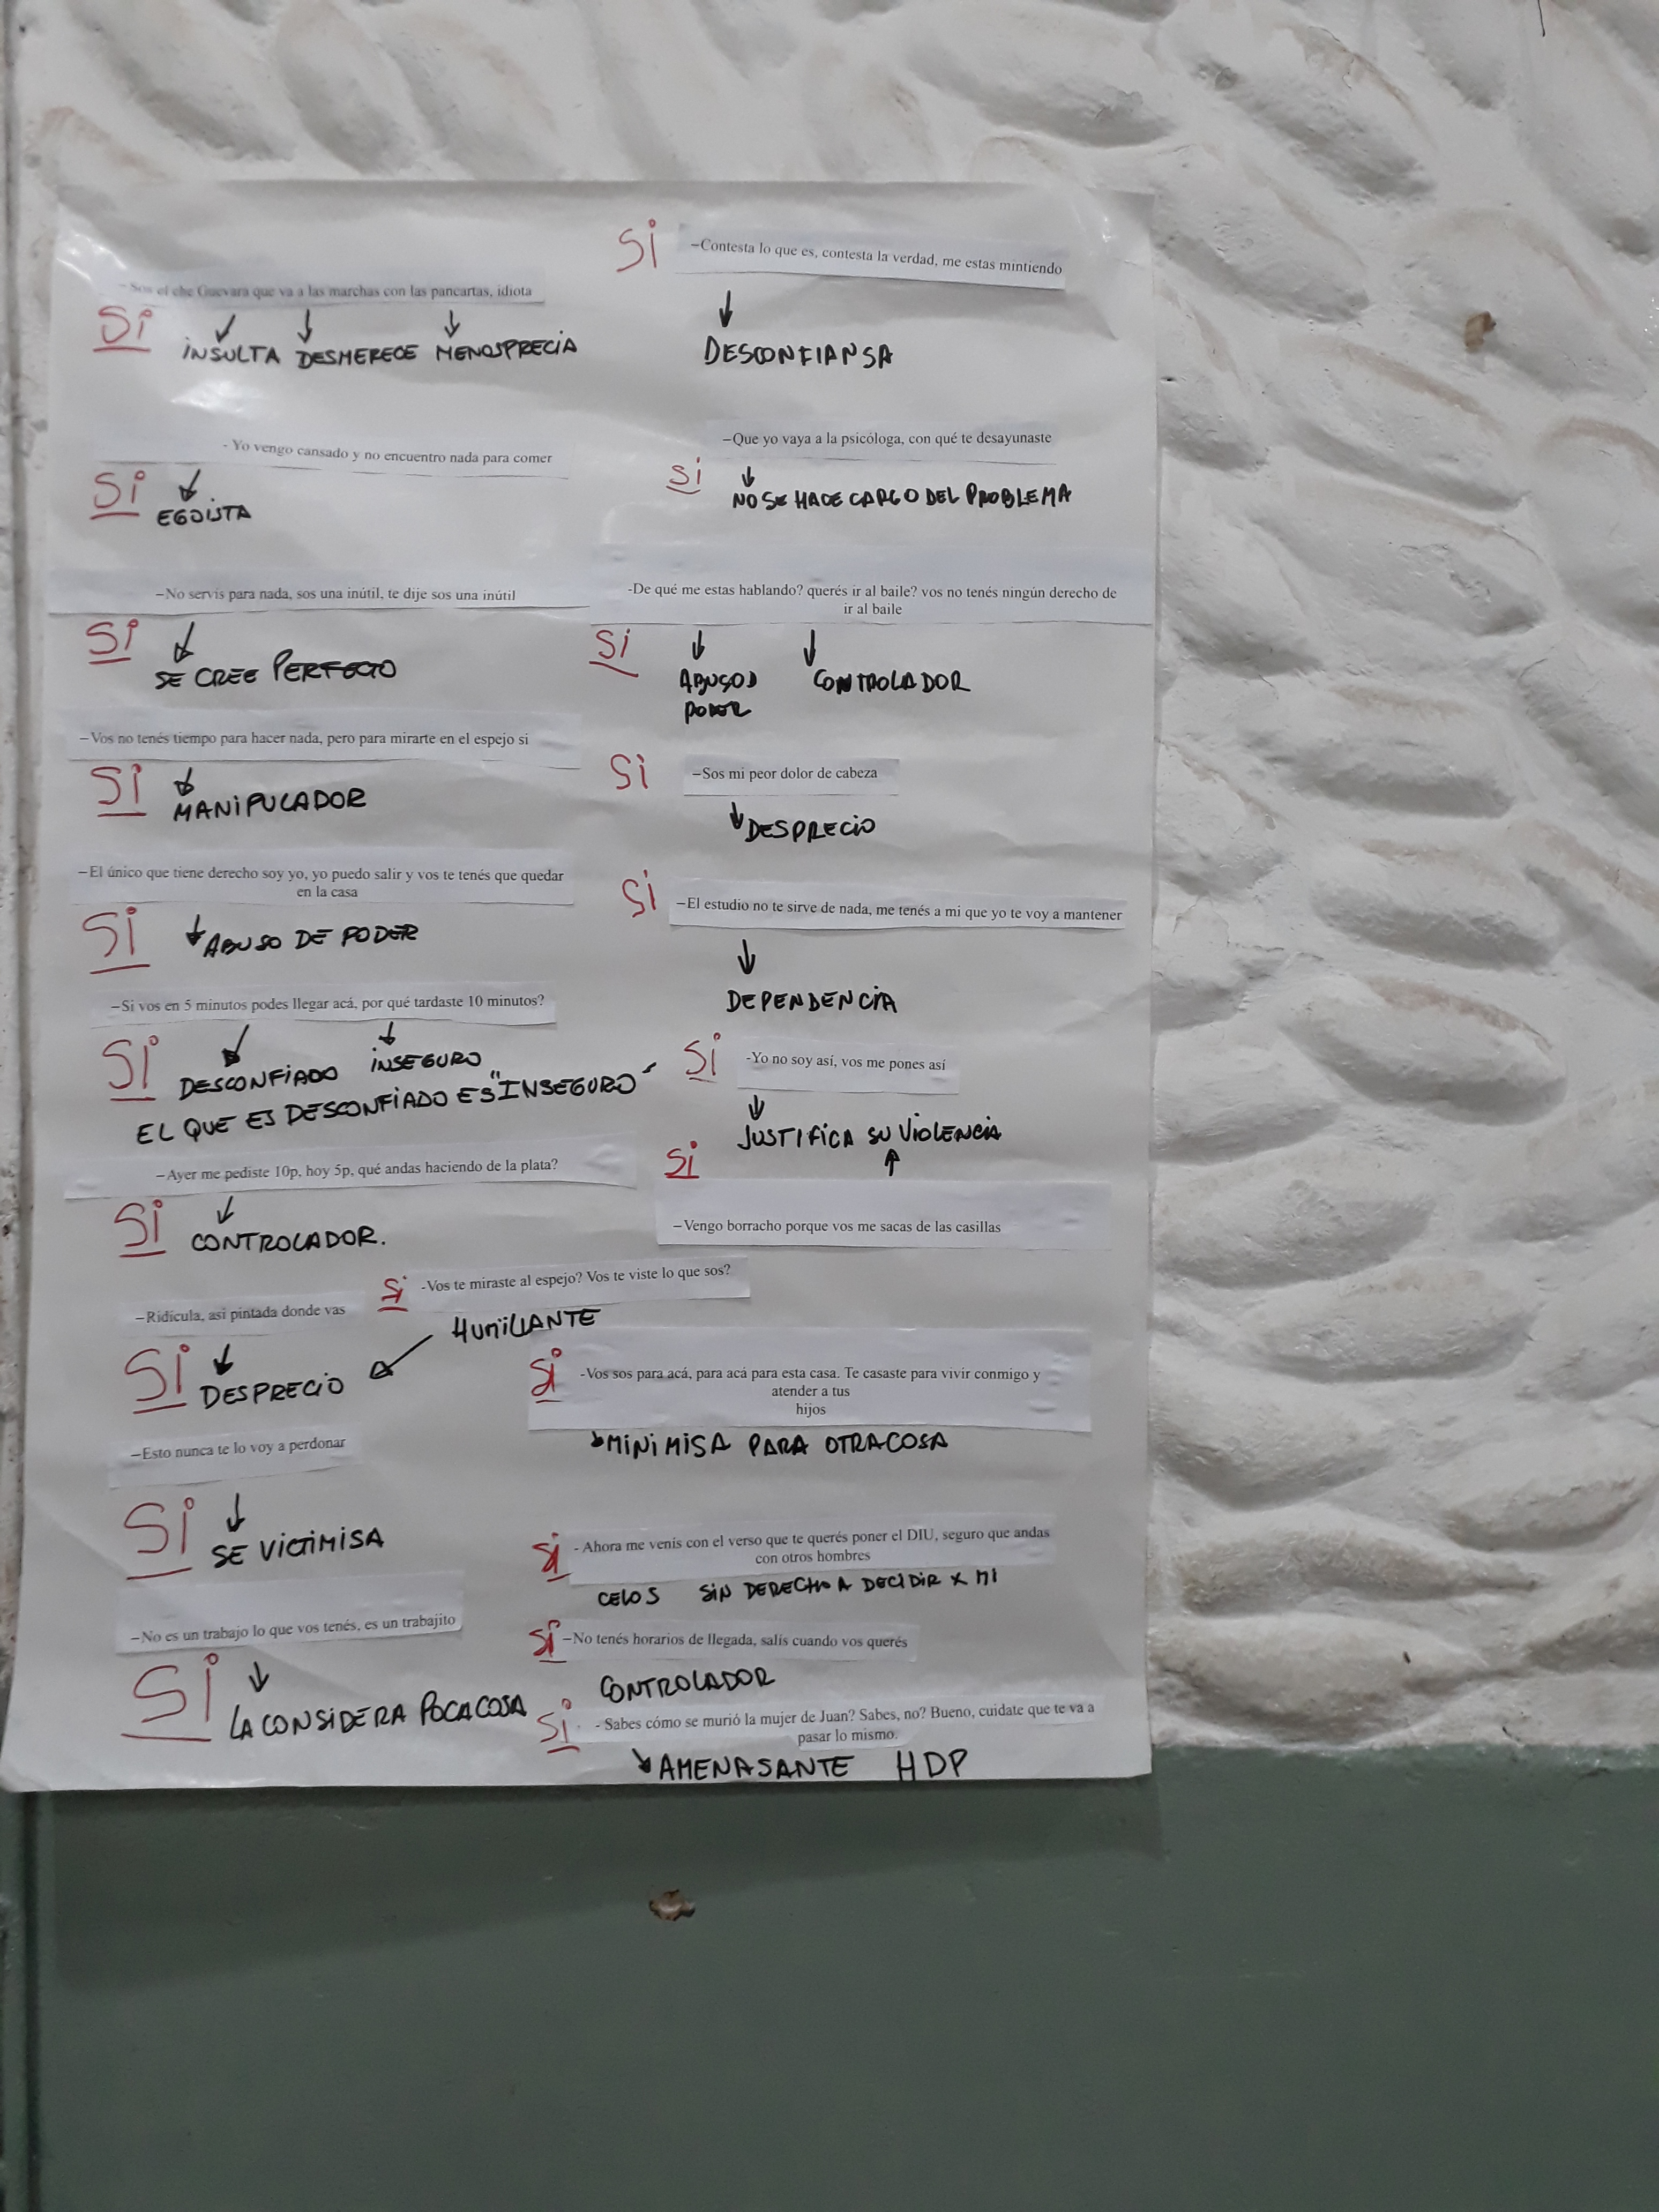 – Sos el che Guevara que va a las marchas con las pancartas, idiota
Si
INSULTA DESMERECE MENOSPRECIA
- Yo vengo cansado y no encuentro nada para comer
Si
EGOISTA
–No servís para nada, sos una inútil, te dije sos una inútil
Si
SE CREE PERFECTO
–Vos no tenés tiempo para hacer nada, pero para mirarte en el espejo si
Si
MANIPULADOR
–El único que tiene derecho soy yo, yo puedo salir y vos te tenés que quedar
en la casa
Si
ABUSO DE PODER
–Si vos en 5 minutos podes llegar acá, por qué tardaste 10 minutos?
Si
DESCONFIADO INSEGURO
EL QUE ES DESCONFIADO ES "INSEGURO"
–Ayer me pediste 10p, hoy 5p, qué andas haciendo de la plata?
Si
CONTROLADOR.
–Ridícula, así pintada donde vas
Si
DESPRECIO
–Esto nunca te lo voy a perdonar
Si
SE VICTIMISA
–No es un trabajo lo que vos tenés, es un trabajito
Si
LA CONSIDERA POCA COSA
Si
–Contesta lo que es, contesta la verdad, me estas mintiendo
DESCONFIANSA
–Que yo vaya a la psicóloga, con qué te desayunaste
Si
NO SE HACE CARGO DEL PROBLEMA
-De qué me estas hablando? querés ir al baile? vos no tenés ningún derecho de
ir al baile
Si
ABUSO D CONTROLADOR
PODER
Si
–Sos mi peor dolor de cabeza
DESPRECIO
Si
–El estudio no te sirve de nada, me tenés a mi que yo te voy a mantener
DEPENDENCIA
Si
-Yo no soy así, vos me pones así
JUSTIFICA SU VIOLENCIA
Si
–Vengo borracho porque vos me sacas de las casillas
Si
-Vos te miraste al espejo? Vos te viste lo que sos?
HUMILLANTE
Si
-Vos sos para acá, para acá para esta casa. Te casaste para vivir conmigo y
atender a tus
hijos
MINIMISA PARA OTRA COSA
Si
- Ahora me venís con el verso que te querés poner el DIU, seguro que andas
con otros hombres
CELOS SIN DERECHO A DECIDIR X MI
Si
–No tenés horarios de llegada, salís cuando vos querés
CONTROLADOR
Si
- Sabes cómo se murió la mujer de Juan? Sabes, no? Bueno, cuidate que te va a
pasar lo mismo.
AMENASANTE HDP